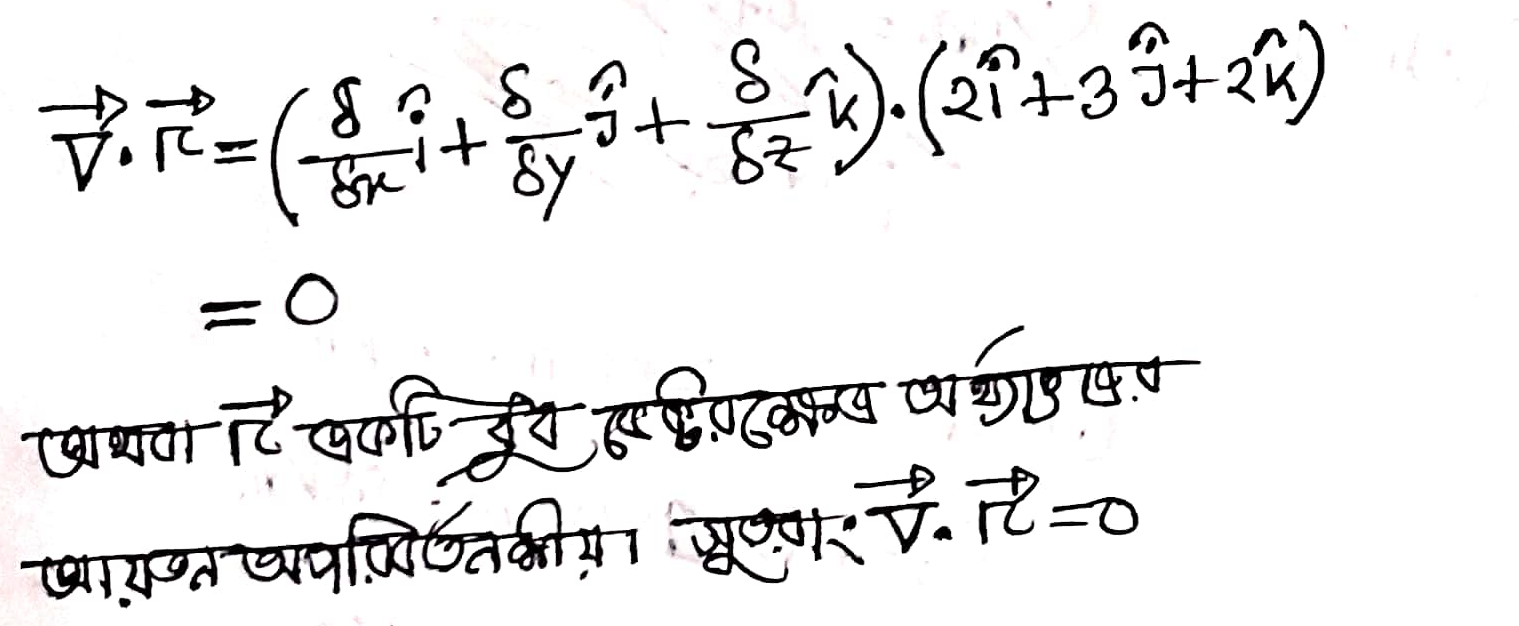 ∇⃗.r⃗ = (δ/δx î + δ/δy ĵ + δ/δz k̂).(2î+3ĵ+2k̂)
= 0
অথবা r⃗ একটি ধ্রুব ভেক্টরক্ষেত্র অর্থ্যাৎ এর
আয়তন অপরিবর্তনীয়। সুতরাং ∇⃗.r⃗=0